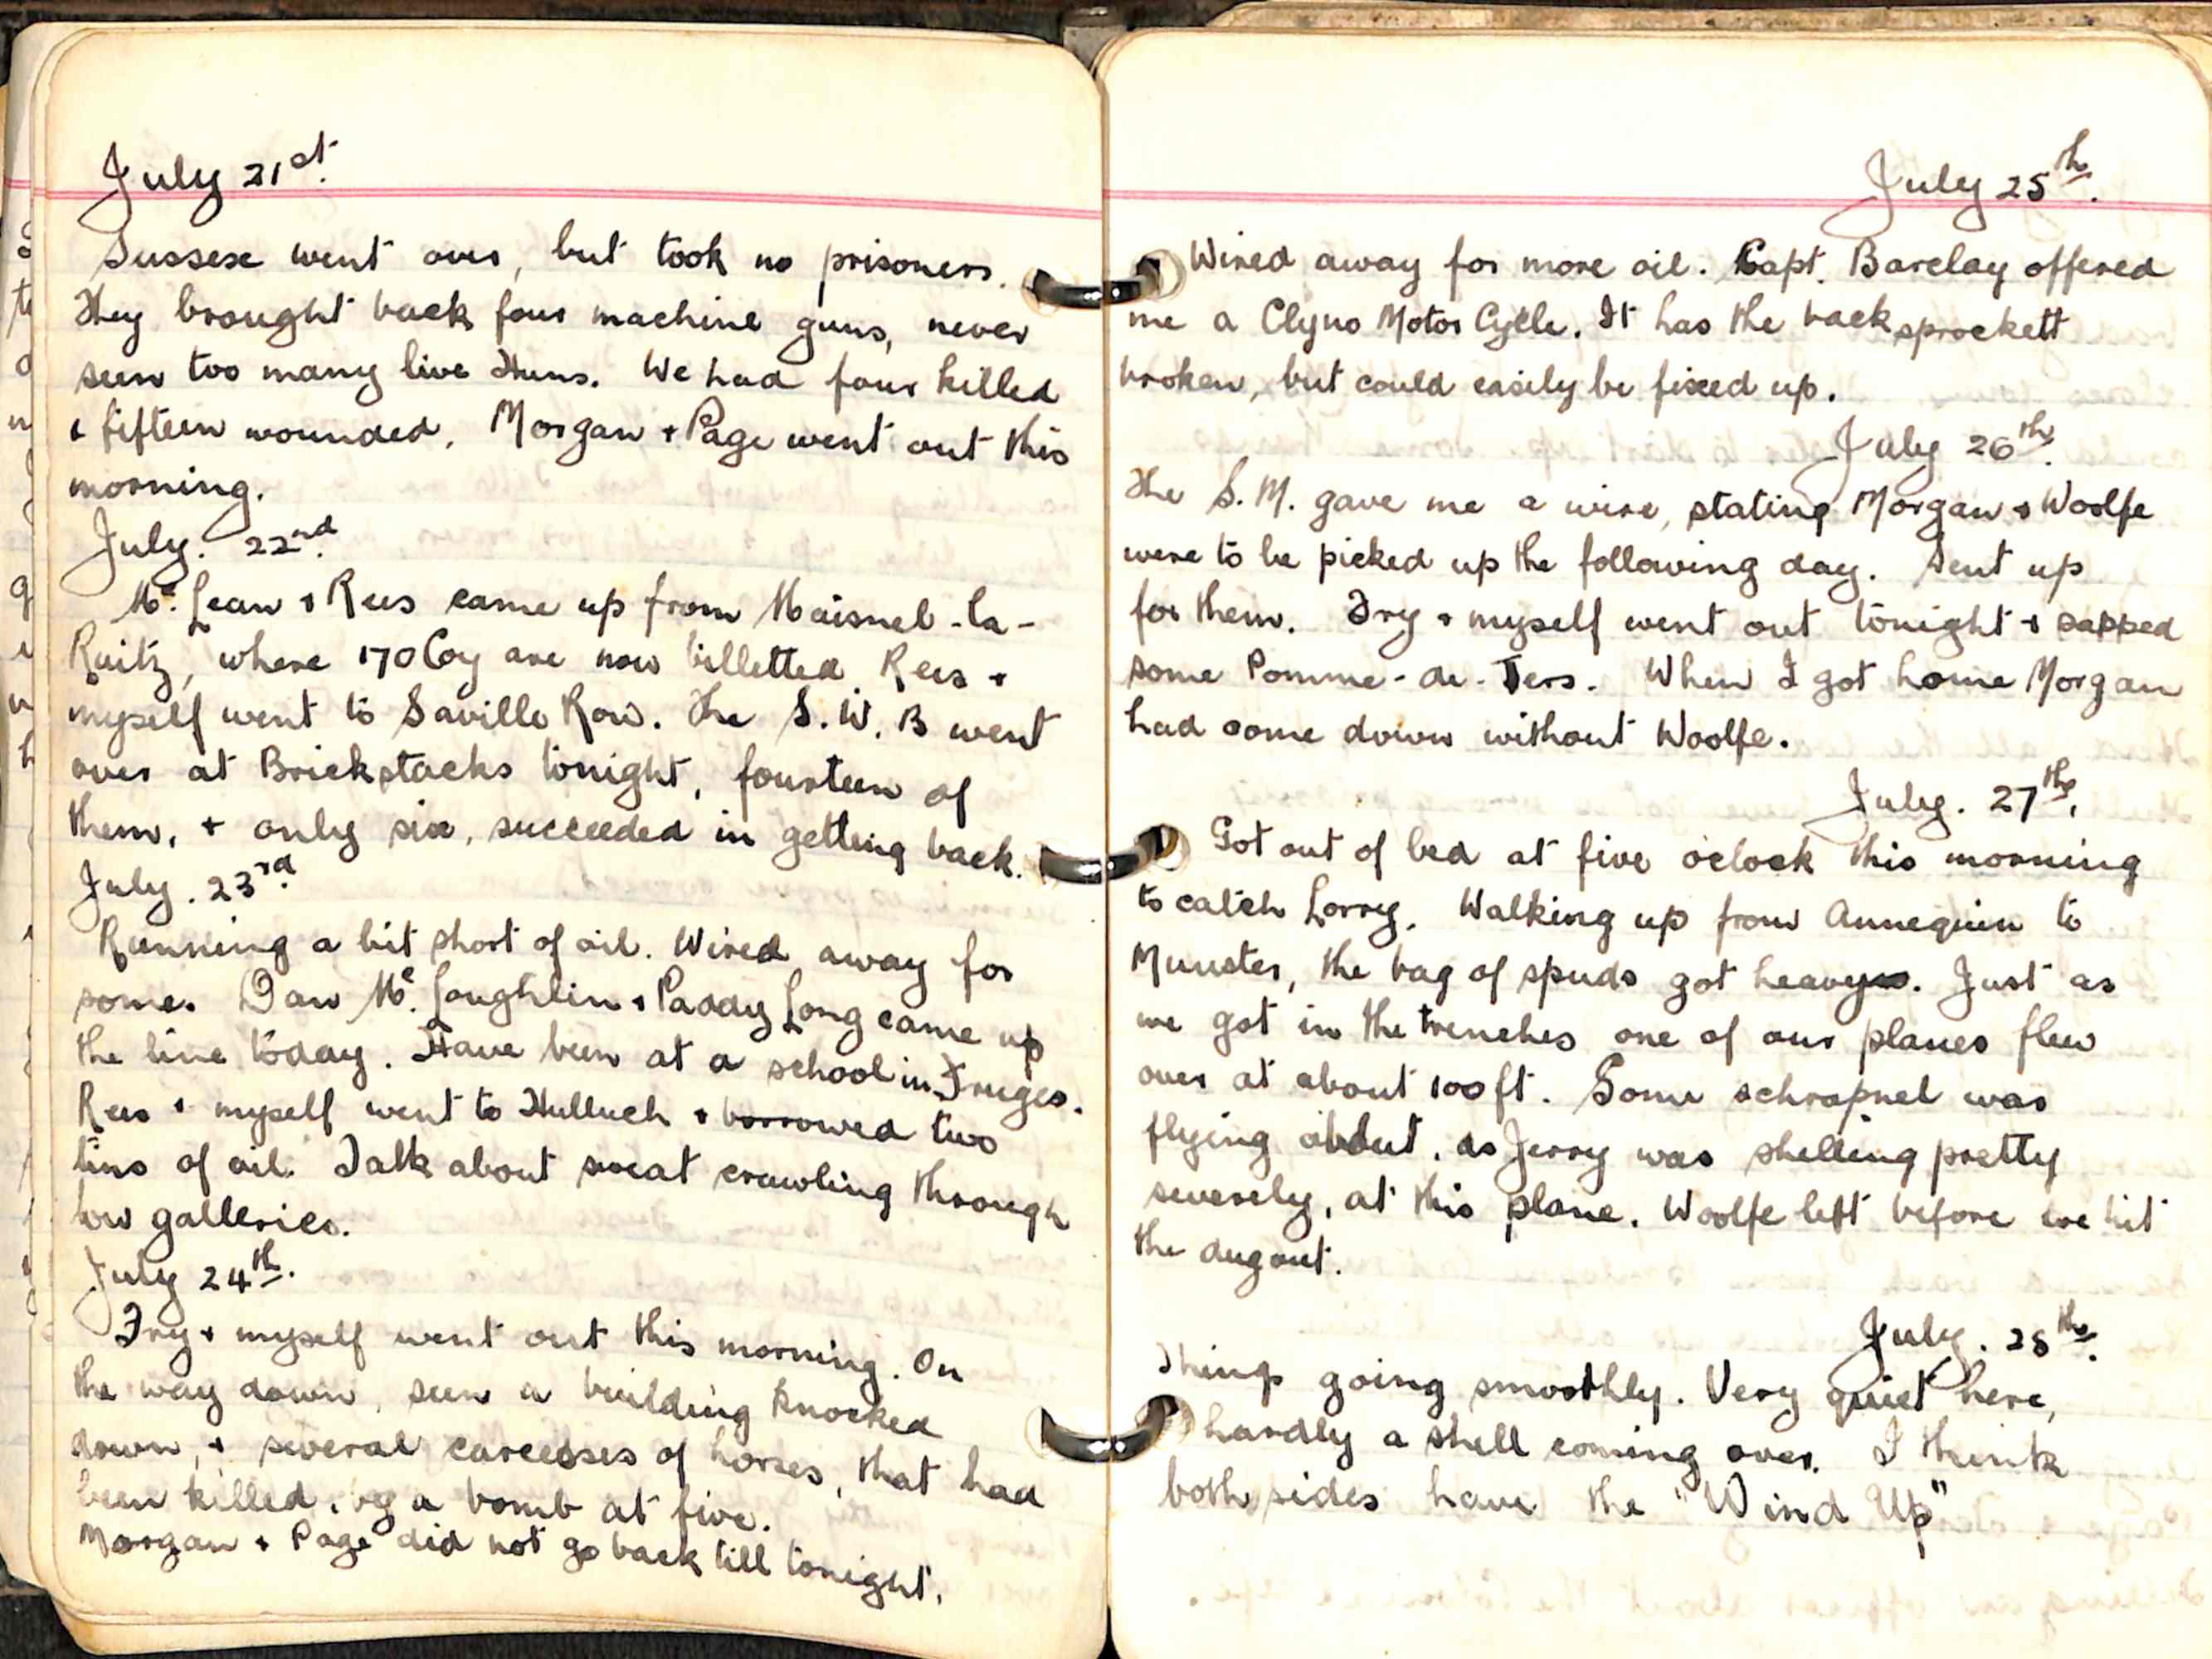 July 21st.
Sussex went over, but took no prisoners.
They brought back four machine guns, never
seen too many live Huns. We had four killed
& fifteen wounded. Morgan + Page went out this
morning.
July. 22nd.
Mc. Lean + Rees came up from Maisnel-la-
Ruitz, where 170 Coy are now billetted. Rees +
myself went to Saville Row. The S.W.B went
over at Brickstacks tonight, fourteen of
them, + only six, succeeded in getting back.
July. 23rd.
Running a bit short of oil. Wired away for
some. Dan Mc. Loughlin + Paddy Long came up
the line today. Have been at a school in Fruges.
Rees + myself went to Hulluch + borrowed two
tins of oil. Talk about sweat crawling through
low galleries.
July 24th.
Fry + myself went out this morning. On
the way down, seen a building knocked
down, + several carcesses of horses, that had
been killed, by a bomb at five.
Morgan + Page did not go back till tonight.
July 25th.
Wired away for more oil. Capt. Barclay offered
me a Clyno Motor Cycle. It has the back sprockett
broken, but could easily be fixed up.
July 26th.
The S.M. gave me a wire, stating Morgan + Woolfe
were to be picked up the following day. Sent up
for them. Fry + myself went out tonight + sapped
some Pomme-de-Ters. When I got home Morgan
had come down without Woolfe.
July. 27th.
Got out of bed at five oclock this morning
to catch Lorry. Walking up from Annequin to
Munster, the bag of spuds got heavy. Just as
we got in the trenches one of our planes flew
over at about 100 ft. Some schrapnel was
flying about, as Jerry was shelling pretty
severely, at this plane. Woolfe left before we hit
the dugout.
July. 28th.
Things going smoothly. Very quiet here,
hardly a shell coming over. I think
both sides have the "Wind Up"